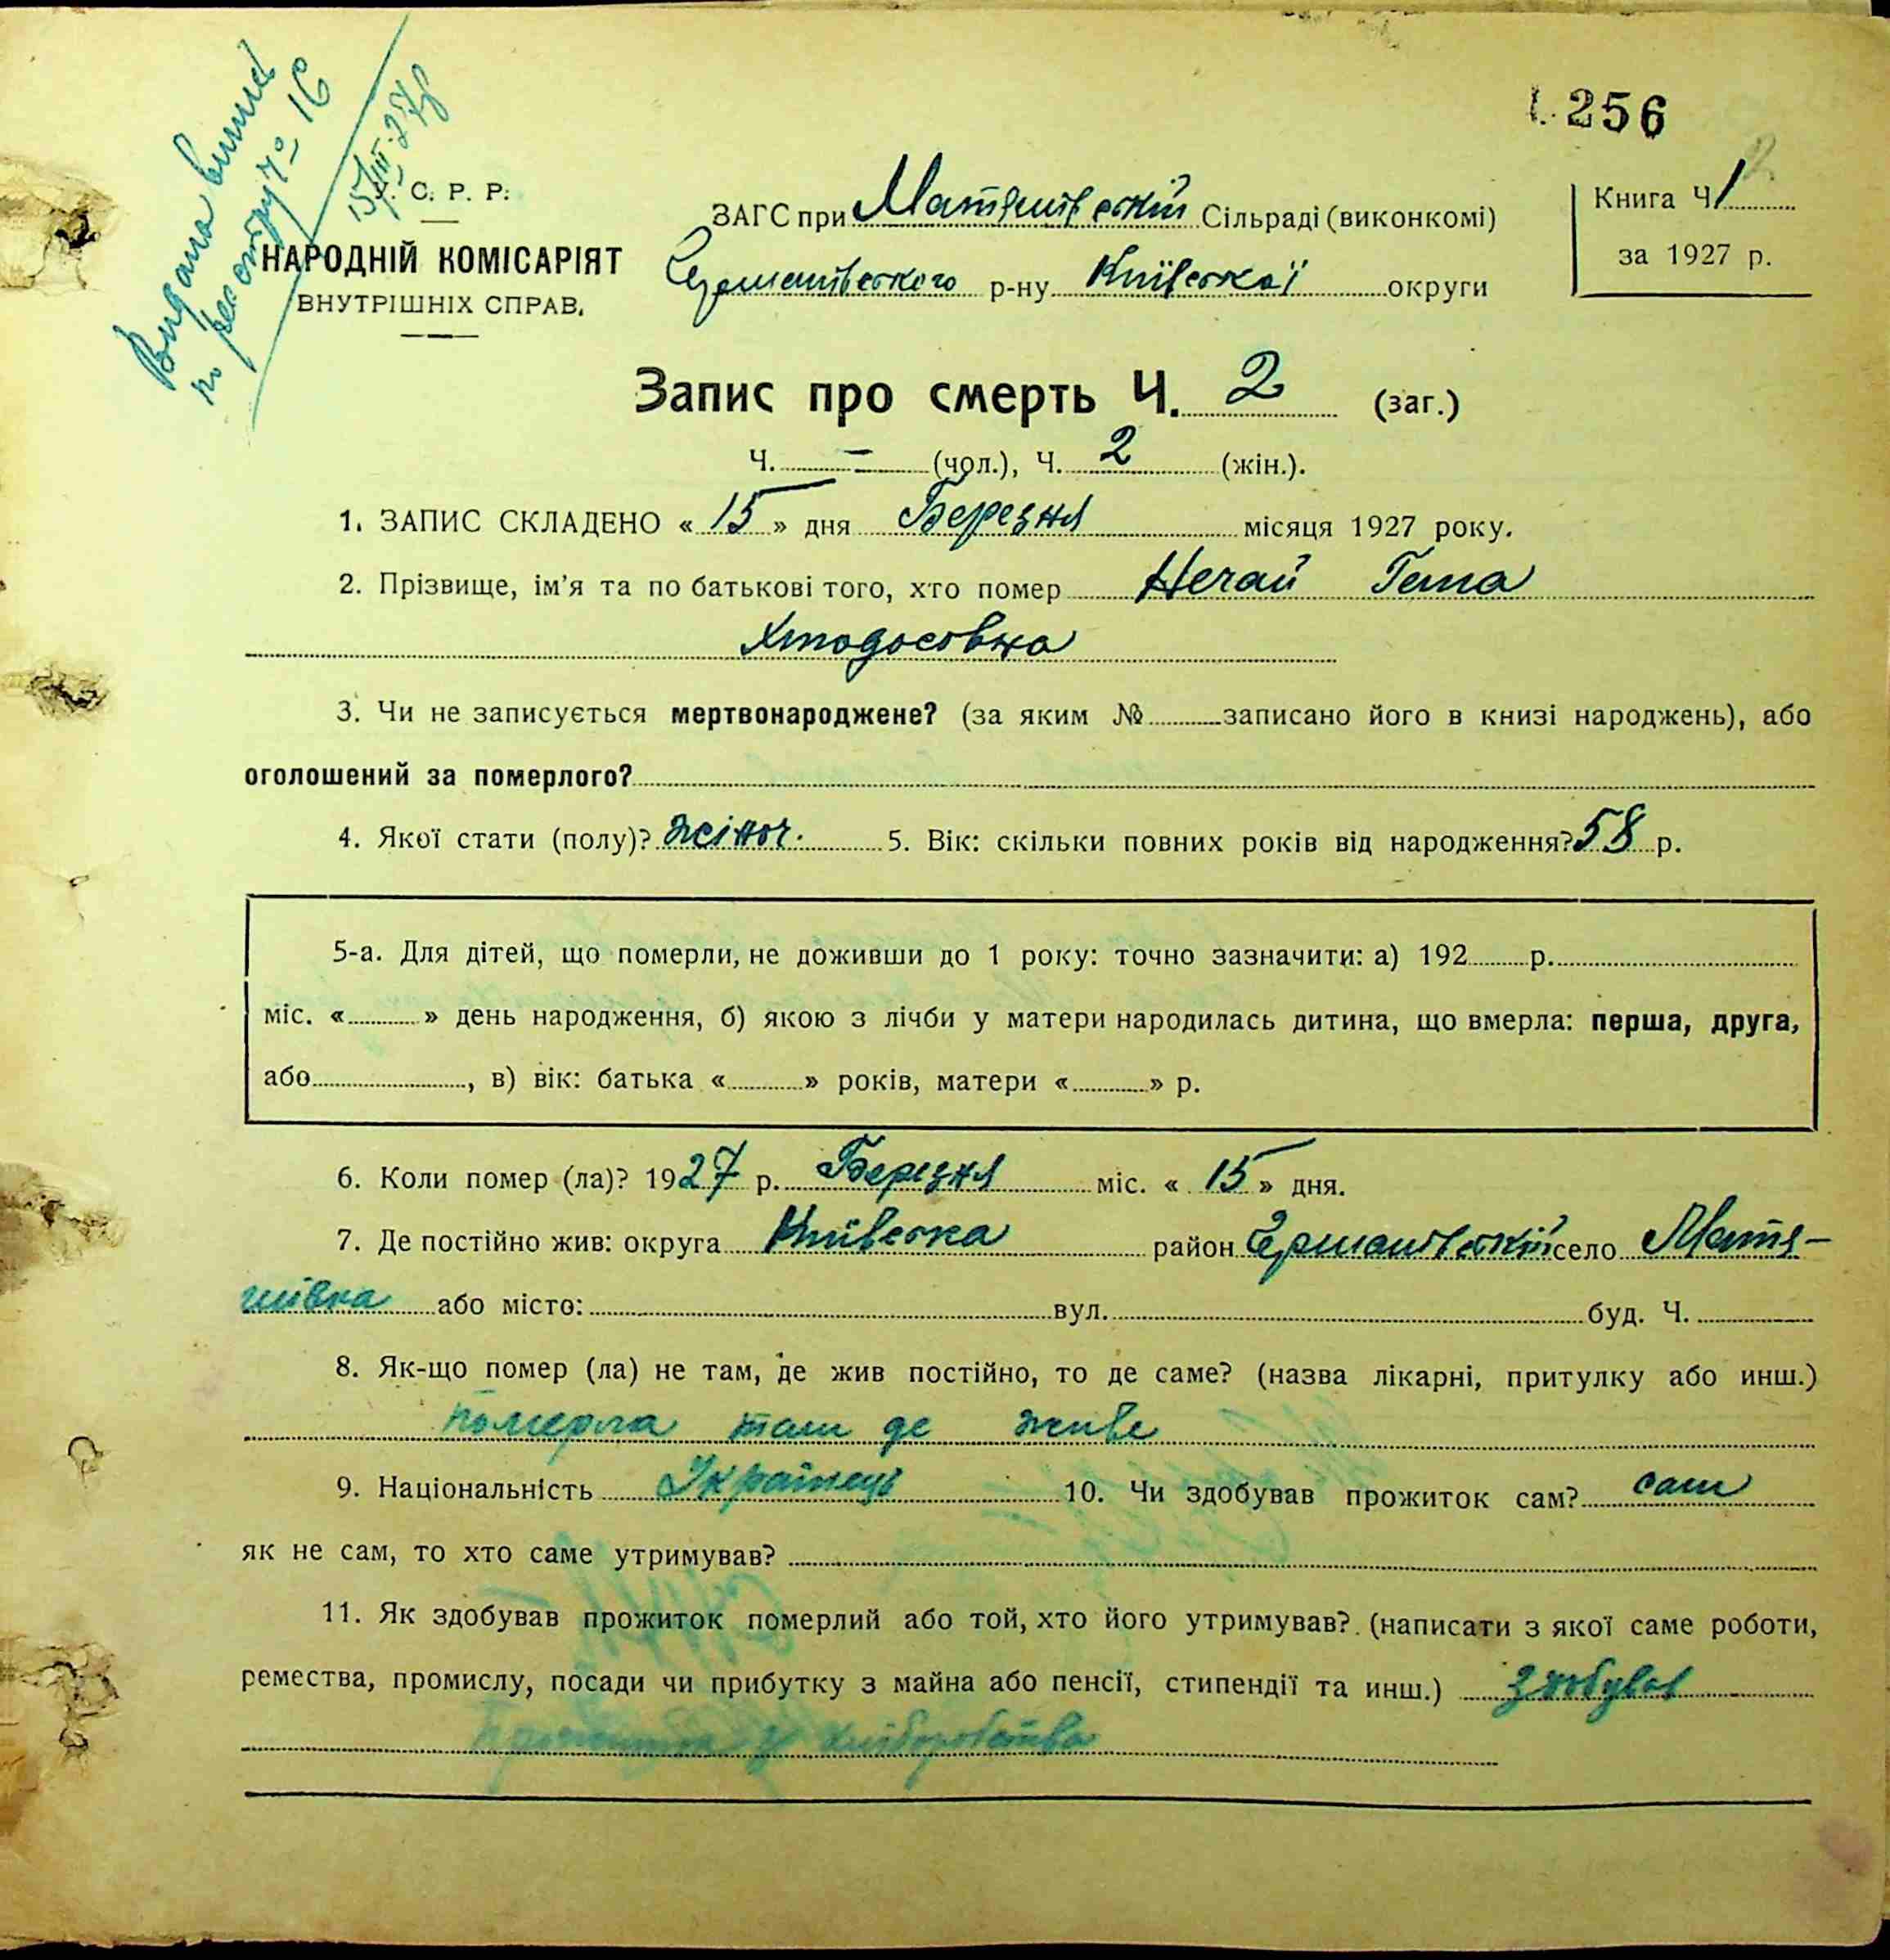 256
Видана виписка
по реєстру № 16
15/III-27 р
С. Р. Р.
НАРОДНІЙ КОМІСАРІЯТ
ВНУТРІШНІХ СПРАВ.
ЗАГС при Матяшівській Сільраді (виконкомі)
р-ну Київської округи
Книга Ч 1
за 1927 р.
Запис про смерть Ч. 2 (заг.)
Ч. – (чол.), Ч. 2 (жін.).
1. ЗАПИС СКЛАДЕНО « 15 » дня Березня місяця 1927 року.
2. Прізвище, ім'я та по батькові того, хто помер Нечай
Хтодосовна
3. Чи не записується мертвонароджене? (за яким № записано його в книзі народжень), або
оголошений за померлого?
4. Якої стати (полу)? жіноч. 5. Вік: скільки повних років від народження? 58 р.
5-а. Для дітей, що померли, не доживши до 1 року: точно зазначити: а) 192 р.
міс. « » день народження, б) якою з лічби у матери народилась дитина, що вмерла: перша, друга,
або , в) вік: батька « » років, матери « » р.
6. Коли помер (ла)? 1927 р. Березня міс. « 15 » дня.
7. Де постійно жив: округа Київська район село Матя-
шівка або місто: вул. буд. Ч.
8. Як-що помер (ла) не там, де жив постійно, то де саме? (назва лікарні, притулку або инш.)
померла там де живе
9. Національність Українець 10. Чи здобував прожиток сам? сам
як не сам, то хто саме утримував?
11. Як здобував прожиток померлий або той, хто його утримував? (написати з якої саме роботи,
ремества, промислу, посади чи прибутку з майна або пенсії, стипендії та инш.)
з хліборобства